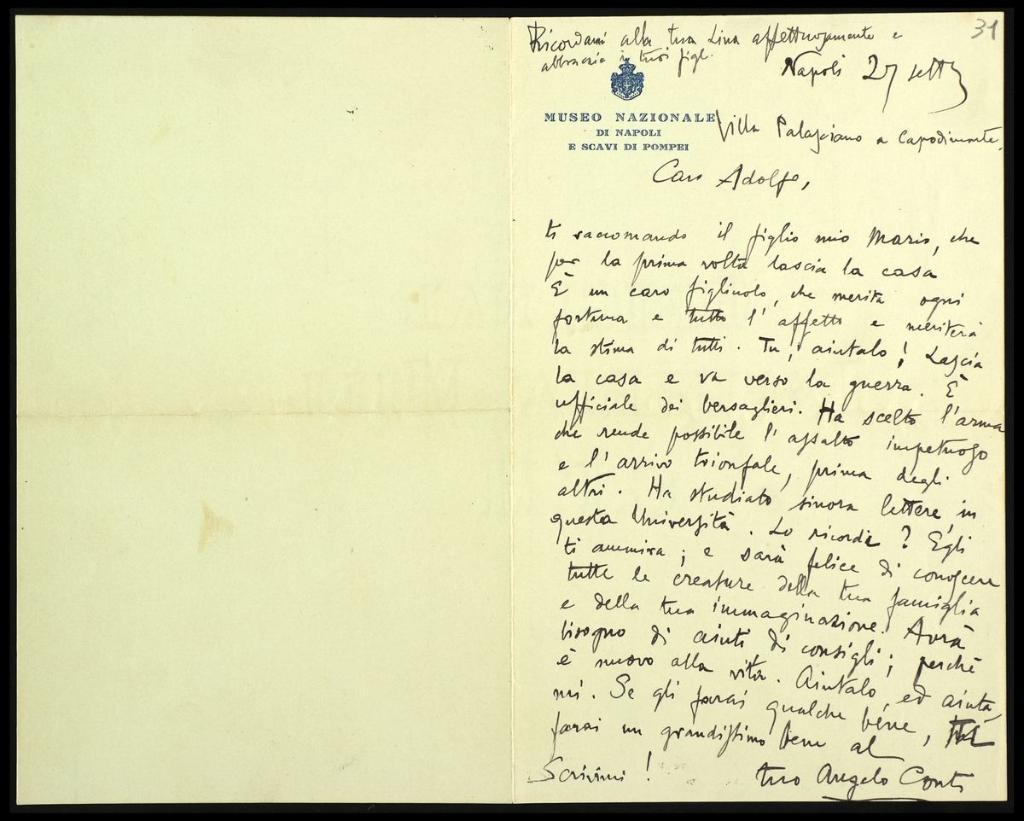 31
Ricordami alla tua Lina affettuosamente e
abbraccia i tuoi figli.
Napoli 27 sett
MUSEO NAZIONALE
DI NAPOLI
E SCAVI DI POMPEI
Villa Palasciano a Capodimonte.
Caro Adolfo,
ti raccomando il figlio mio Mario, che
per la prima volta lascia la casa
È un caro figliuolo, che merita ogni
fortuna e tutto l'affetto e meriterà
la stima di tutti. Tu, aiutalo! Lascia
la casa e va verso la guerra. È
ufficiale dei bersaglieri. Ha scelto l'arma
che rende possibile l'assalto impetuoso
e l'arrivo trionfale, prima degli
altri. Ha studiato sinora lettere in
questa Università. Lo ricordi? Egli
ti ammira; e sarà felice di conoscere
tutte le creature della tua famiglia
e della tua immaginazione. Avrà
bisogno di aiuti di consigli; perché
è nuovo alla vita. Aiutalo, ed aiuta
mi. Se gli farai qualche bene,
farai un grandissimo bene al
Scrivimi! tuo Angelo Conti